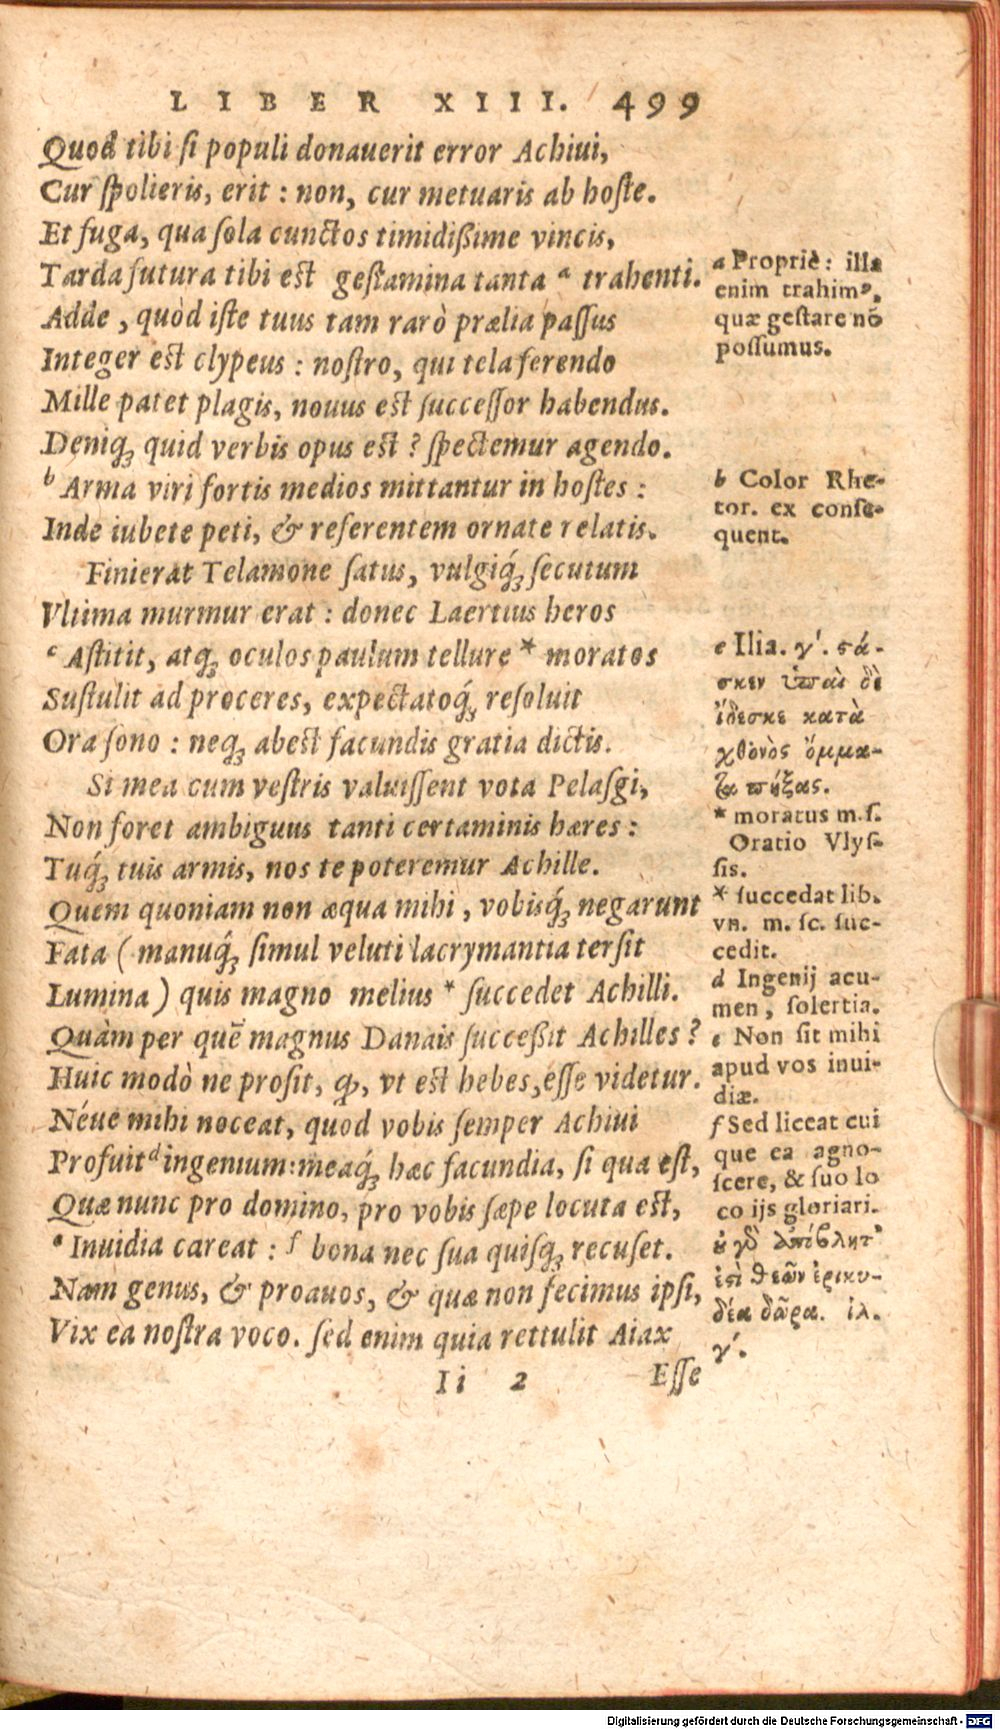 LIBER XIII. 499
Quod tibi si populi donauerit error Achiui,
Cur spolieris, erit : non, cur metuaris ab hoste.
Et fuga, qua sola cunctos timidißime vincis,
Tarda futura tibi est gestamina tanta ᵃ trahenti.
Adde , quòd iste tuus tam rarò prælia passus
Integer est clypeus : nostro, qui tela ferendo
Mille patet plagis, nouus est successor habendus.
Deniqꝫ quid verbis opus est ? spectemur agendo.
ᵇ Arma viri fortis medios mittantur in hostes :
Inde iubete peti, & referentem ornate relatis.
Finierat Telamone satus, vulgiqꝫ́ secutum
Vltima murmur erat : donec Laertius heros
ᶜ Astitit, atqꝫ oculos paulum tellure * moratos
Sustulit ad proceres, expectatoqꝫ́ resoluit
Ora sono : neqꝫ abest facundis gratia dictis.
Si mea cum vestris valuissent vota Pelasgi,
Non foret ambiguus tanti certaminis hæres :
Tuqꝫ́ tuis armis, nos te poteremur Achille.
Quem quoniam non æqua mihi , vobisqꝫ́ negarunt
Fata ( manuqꝫ́ simul veluti lacrymantia tersit
Lumina ) quis magno melius * succedet Achilli.
Quàm per quẽ magnus Danais succeßit Achilles ?
Huic modò ne prosit, ꝙ, vt est hebes, esse videtur.
Néue mihi noceat, quod vobis semper Achiui
Profuit ᵈ ingenium: meaqꝫ́ hæc facundia, si qua est,
Quæ nunc pro domino, pro vobis sæpe locuta est,
ᵉ Inuidia careat : ᶠ bona nec sua quisqꝫ recuset.
Nam genus, & proauos, & quæ non fecimus ipsi,
Vix ea nostra voco. sed enim quia rettulit Aiax
Ii 2 Esse
a Propriè : illa
enim trahimꝰ,
quæ gestare nõ
possumus.
b Color Rhe-
tor. ex conse-
quent.
c Ilia. γ'. ςά-
σκεν ὑπαὶ δὲ
ἴδεσκε κατὰ
χθονὸς ὄμμα-
τα πήξας.
* moratus m.s.
Oratio Vlys-
sis.
* succedat lib.
vn. m. sc. suc-
cedit.
d Ingenij acu-
men , solertia.
e Non sit mihi
apud vos inui-
diæ.
f Sed liceat cui
que ea agno-
scere, & suo lo
co ijs gloriari.
ἀπόβλητ'
ἐςὶ θεῶν ἐρικυ-
δέα δῶρα. ἰλ.
γ'.
Digitalisierung gefördert durch die Deutsche Forschungsgemeinschaft - DFG